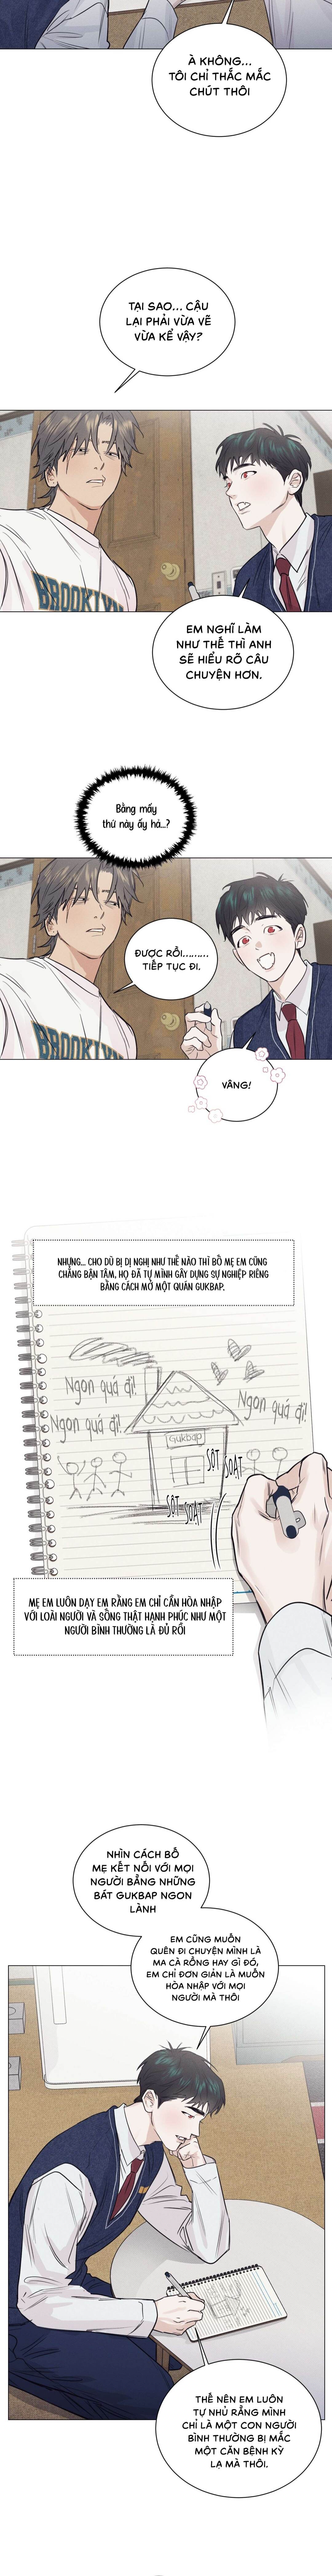 À KHÔNG...
TÔI CHỈ THẮC MẮC
CHÚT THÔI
TẠI SAO... CẬU
LẠI PHẢI VỪA VẼ
VỪA KỂ VẬY?
BROOKLYN
EM NGHĨ LÀM
NHƯ THẾ THÌ ANH
SẼ HIỂU RÕ CÂU
CHUYỆN HƠN.
Bằng mấy
thứ này ấy hả...?
ĐƯỢC RỒI.........
TIẾP TỤC ĐI.
BROOKLYN
VÂNG!
NHƯNG... CHO DÙ BỊ DỊ NGHỊ NHƯ THẾ NÀO THÌ BỐ MẸ EM CŨNG
CHẲNG BẬN TÂM, HỌ ĐÃ TỰ MÌNH GÂY DỰNG SỰ NGHIỆP RIÊNG
BẰNG CÁCH MỞ MỘT QUÁN GUKBAP.
Ngon quá đi!
Ngon quá đi!
Ngon quá đi!
Gukbap
SỘT
SOẠT
SỘT
SOẠT
MẸ EM LUÔN DẠY EM RẰNG EM CHỈ CẦN HÒA NHẬP
VỚI LOÀI NGƯỜI VÀ SỐNG THẬT HẠNH PHÚC NHƯ MỘT
NGƯỜI BÌNH THƯỜNG LÀ ĐỦ RỒI
NHÌN CÁCH BỐ
MẸ KẾT NỐI VỚI MỌI
NGƯỜI BẰNG NHỮNG
BÁT GUKBAP NGON
LÀNH
EM CŨNG MUỐN
QUÊN ĐI CHUYỆN MÌNH LÀ
MA CÀ RỒNG HAY GÌ ĐÓ,
EM CHỈ ĐƠN GIẢN LÀ MUỐN
HÒA NHẬP VỚI MỌI
NGƯỜI MÀ THÔI
THẾ NÊN EM LUÔN
TỰ NHỦ RẰNG MÌNH
CHỈ LÀ MỘT CON NGƯỜI
BÌNH THƯỜNG BỊ MẮC
MỘT CĂN BỆNH KỲ
LẠ MÀ THÔI.